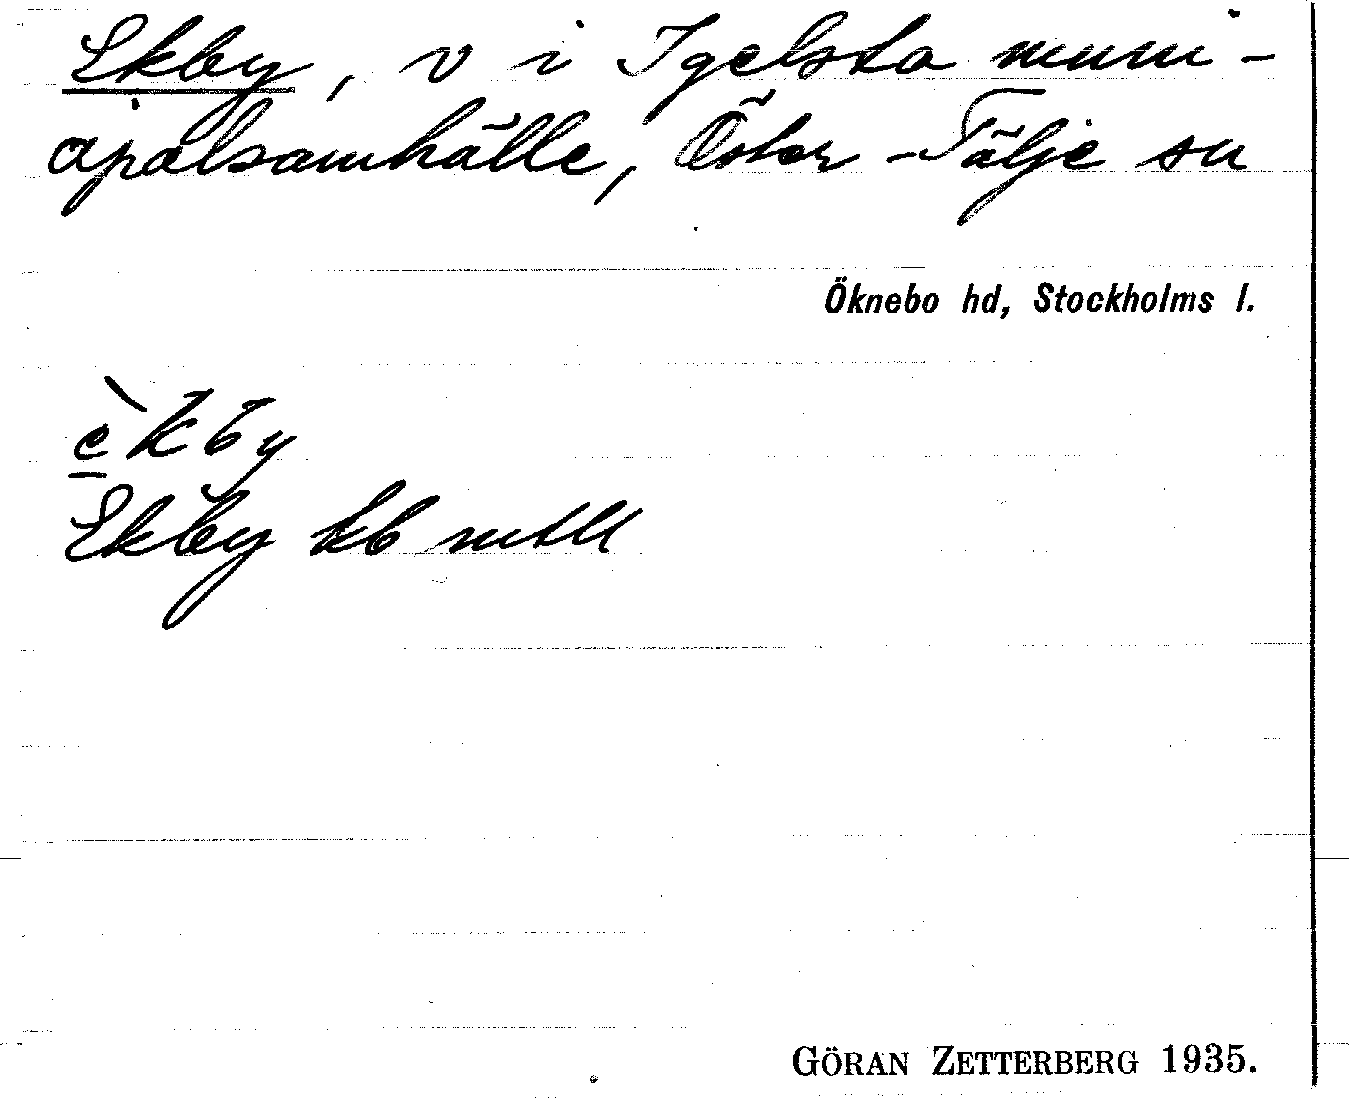 Ekby, v i Igelsta muni-
cipalsamhälle, Öster-Tälje sn
Öknebo hd, Stockholms l.
èkby
Ekby kb mtll
GÖRAN ZETTERBERG 1935.